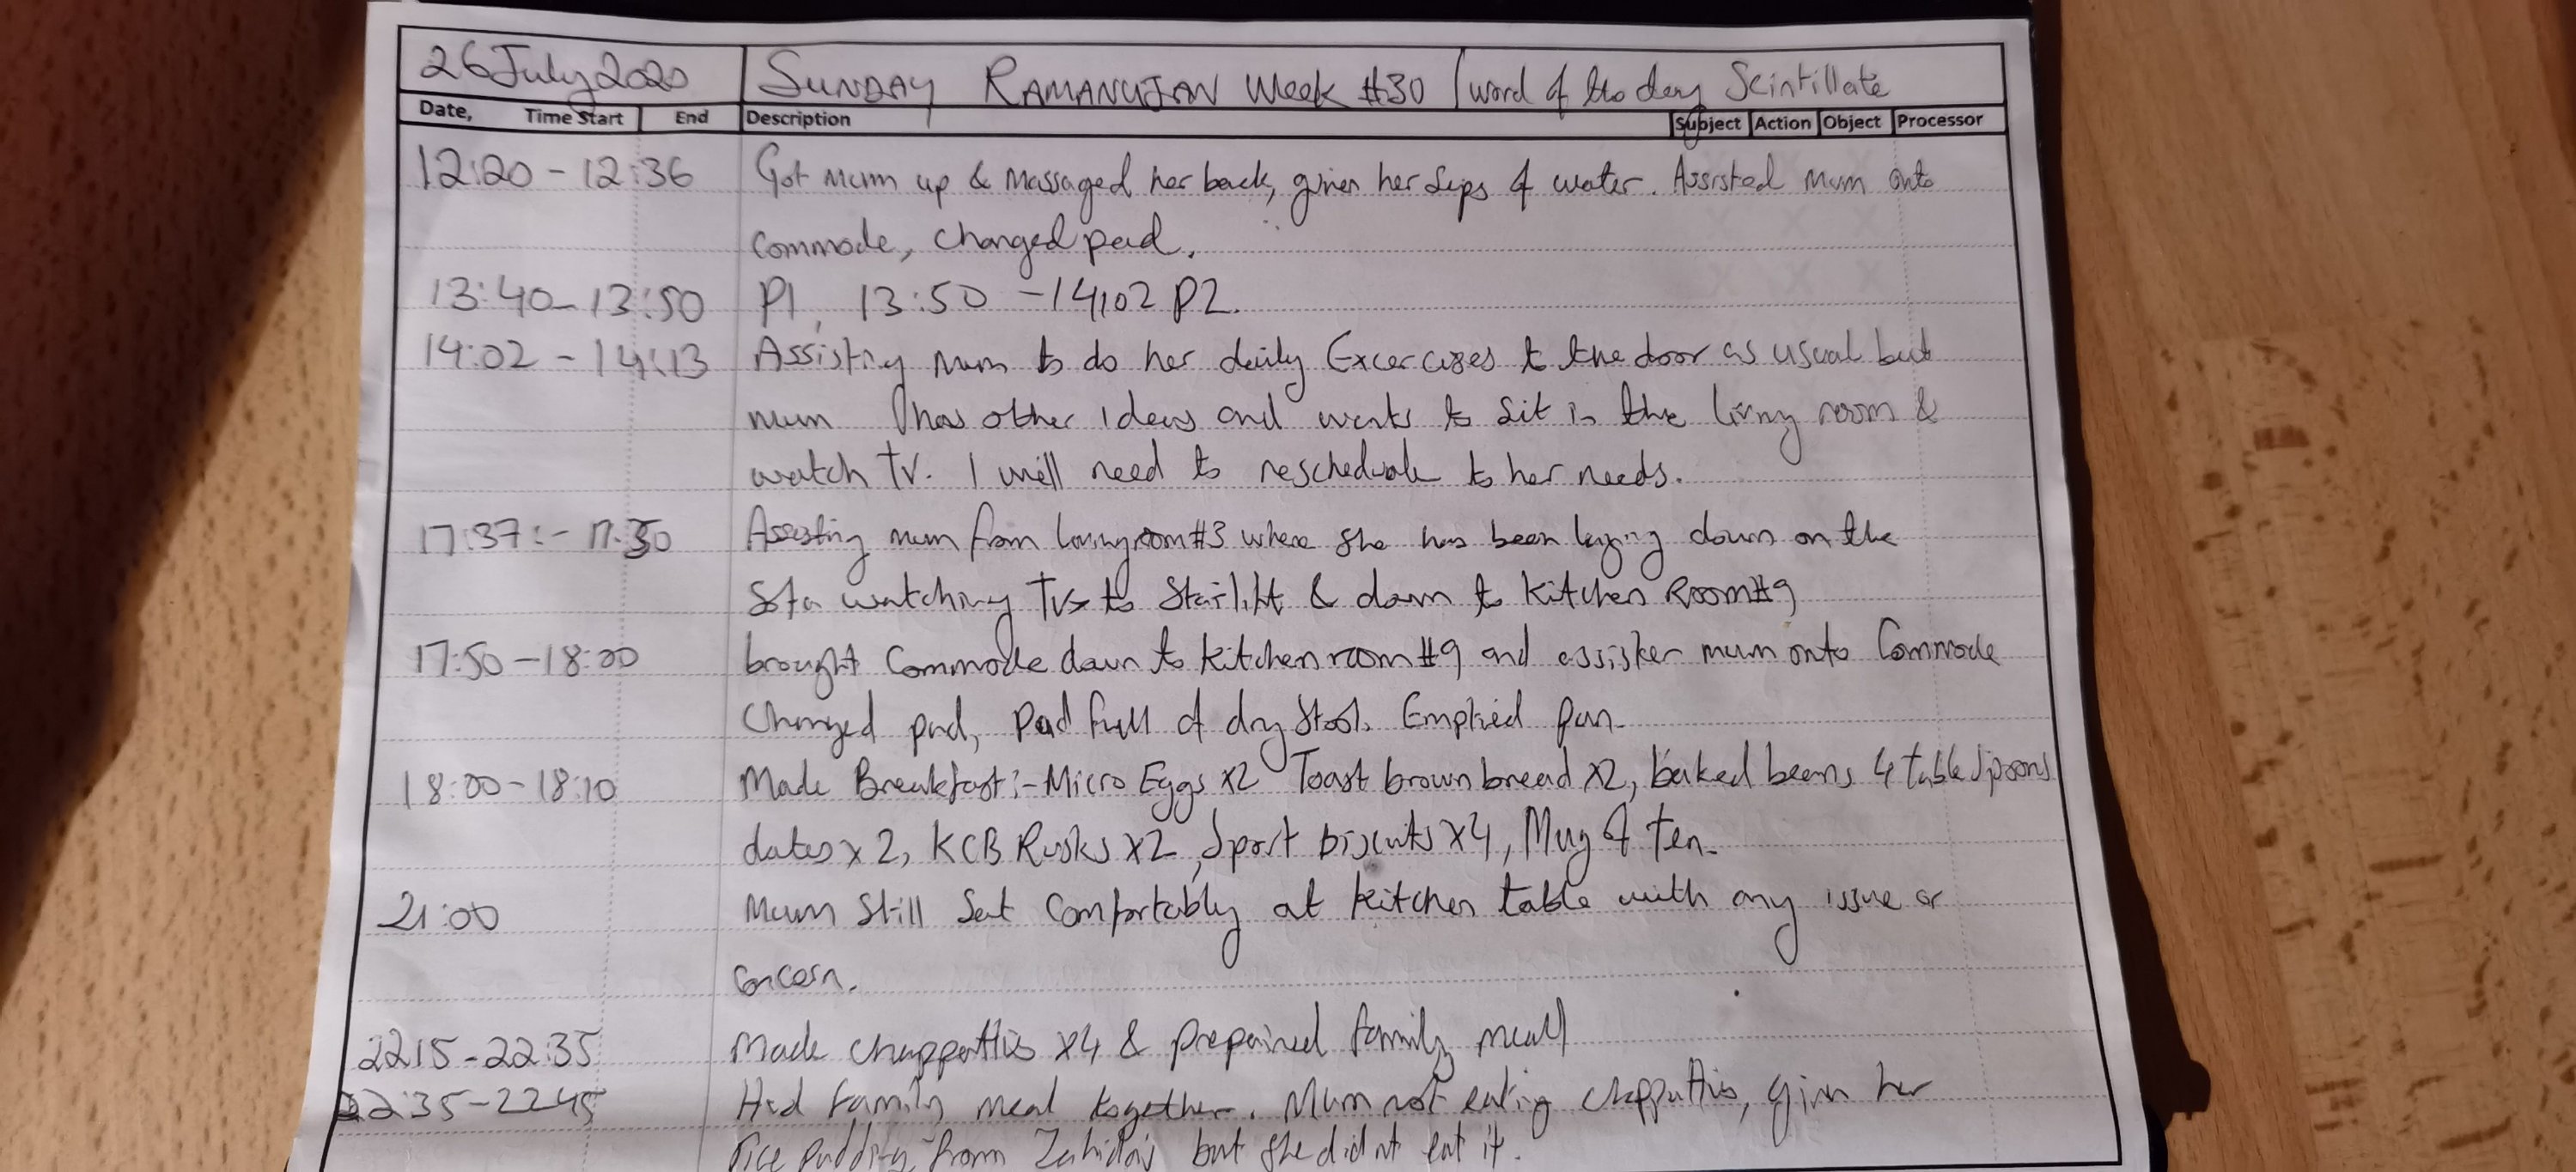 26 July 2020 SUNDAY RAMANUJAN Week #30 / word of the day Scintillate
Date, Time Start End Description Subject Action Object Processor
12:20 - 12:36 Got Mum up & Massaged her back, given her sips of water. Assisted Mum onto
Commode, Changed pad.
13:40 - 13:50 P1, 13:50 - 14:02 P2.
14:02 - 14:13 Assisting Mum to do her daily Excercizes to the door as usual but
mum has other Ideas and wants to sit in the living room &
watch TV. I will need to reschedule to her needs.
17:37:- 17:50 Assisting mum from living room #3 where she has been laying down on the
Sofa watching TV to Stairlift & down to Kitchen Room #9
17:50 - 18:00 brought Commode down to Kitchen room #9 and assister mum onto Commode
Changed pad, Pad full of dry stool. Emptied pan.
18:00 - 18:10 Made Breakfast:- Micro Eggs x2 Toast brown bread x2, baked beans 4 table spoons
dates x 2, KCB Rusks x2, Sport biscuits x4, Mug of Tea.
21:00 Mum Still Sat Comfortably at Kitchen table with any issue or
Concern.
22 15 - 22:35 Made chappattis x4 & prepaired family meal
22:35 - 2245 Had family meal together. Mum not eating chappattis, given her
rice pudding from Zahida's but she did nt eat it.